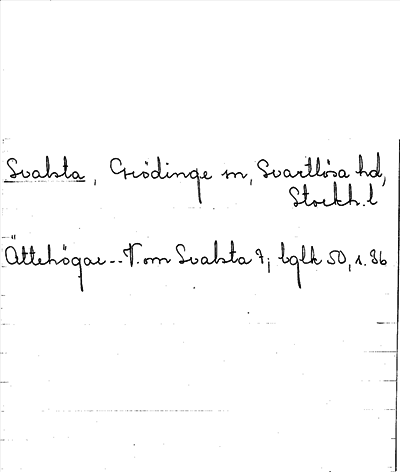 Svalsta, Grödinge sn, Svartlösa hd,
Stockh. l
Ättehögar -- V. om Svalsta 7; bglk 50, s. 86